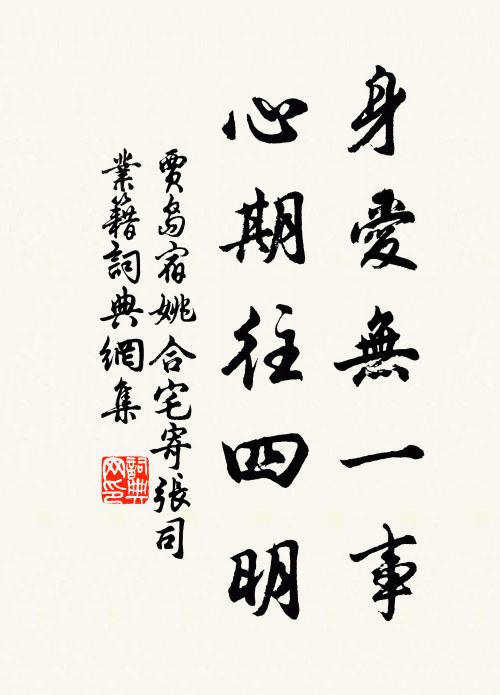 身愛無一事
心期往四明
賈島宿姚合宅寄張司
業籍詞典網集
詞典
网印